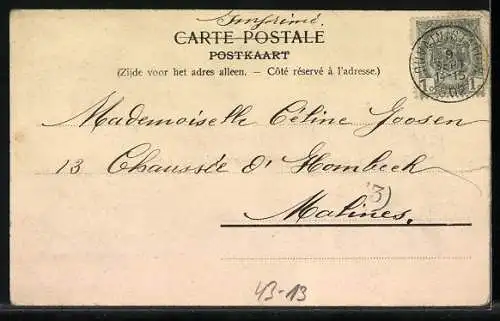 Imprimé.
CARTE POSTALE
POSTKAART
(Zijde voor het adres alleen. — Côté réservé à l'adresse.)
Mademoiselle Céline Joosen
13 Chaussée d'Hombeek
3)
Malines.
43-13